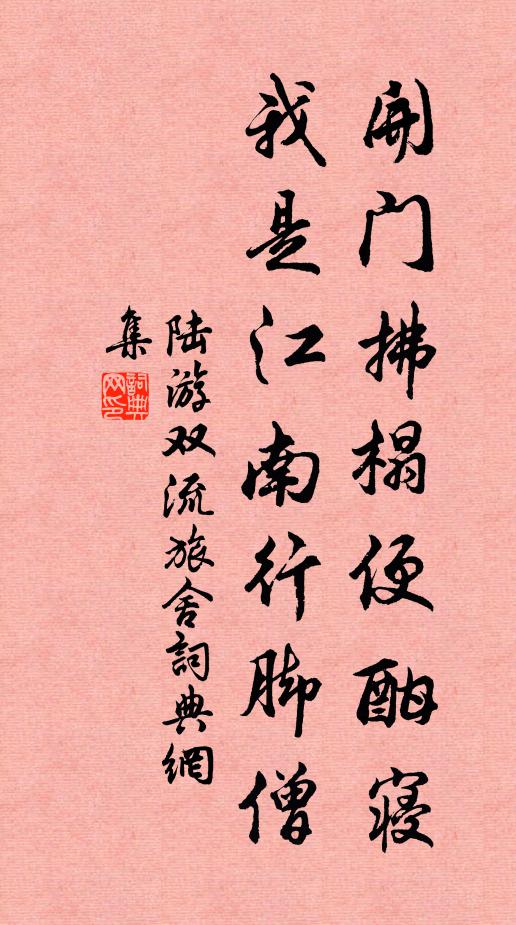 開门拂榻便酣寝
我是江南行脚僧
陆游双流旅舍詞典網
集
詞典
网印